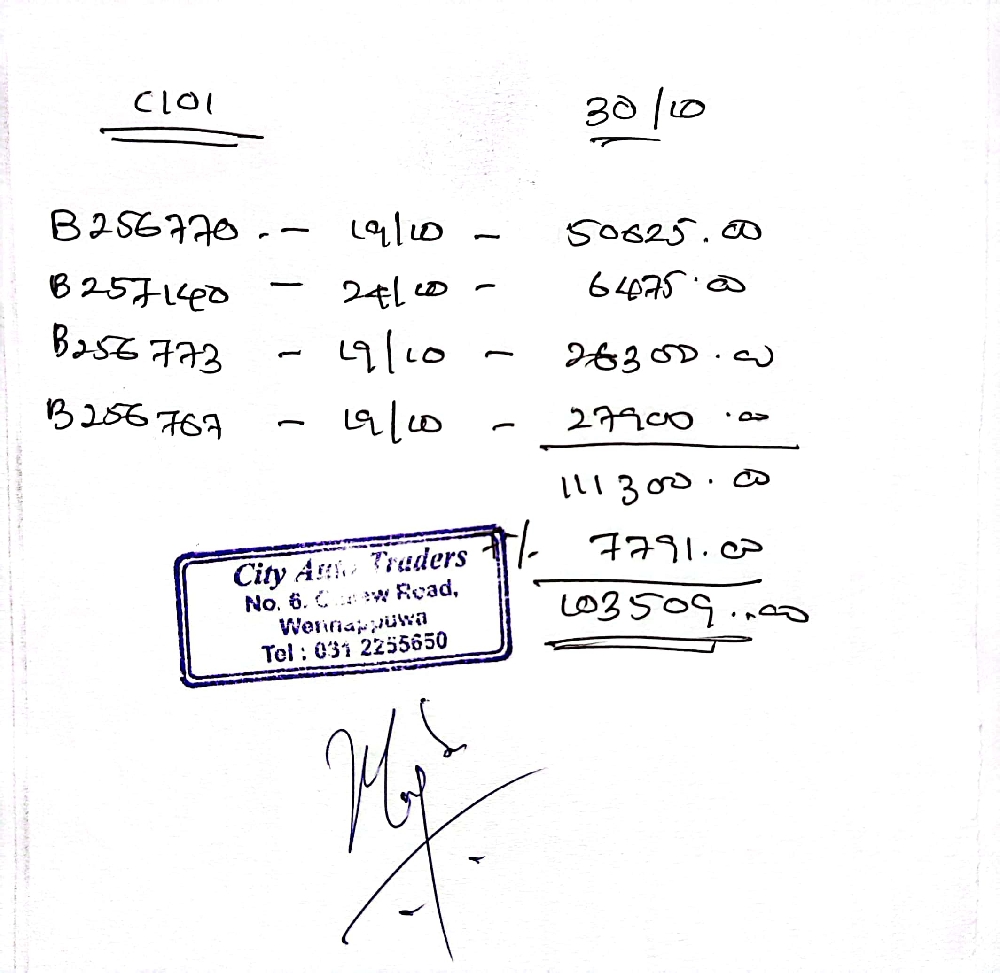 C101 30/10
B256770.- 19/10 - 50625.00
B257140 - 24/10 - 6475.00
B256773 - 19/10 - 26300.00
B256767 - 19/10 - 27900.00
111300.00
7/. 7791.00
103509..00
City Auto Traders
No. 6. Road,
Wennappuwa
Tel : 031 2255650